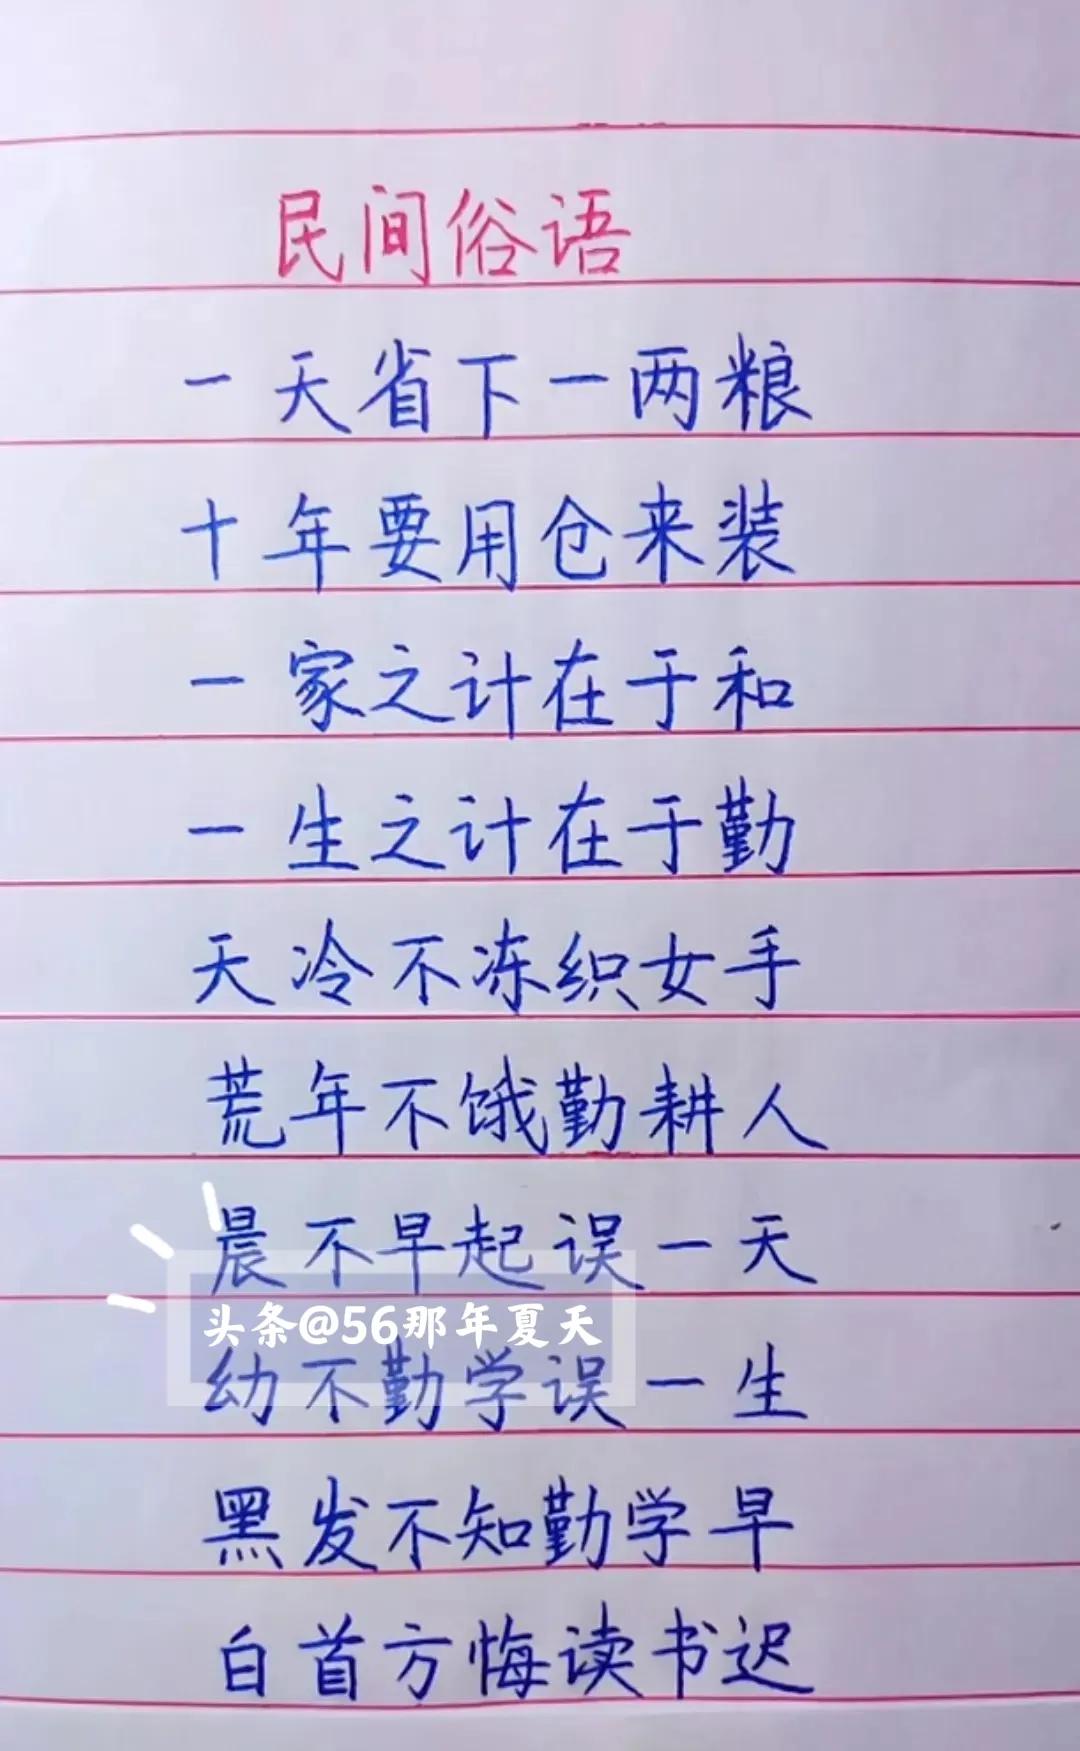 民间俗语
一天省下一两粮
十年要用仓来装
一家之计在于和
一生之计在于勤
天冷不冻织女手
荒年不饿勤耕人
晨不早起误一天
头条@56那年夏天
幼不勤学误一生
黑发不知勤学早
白首方悔读书迟